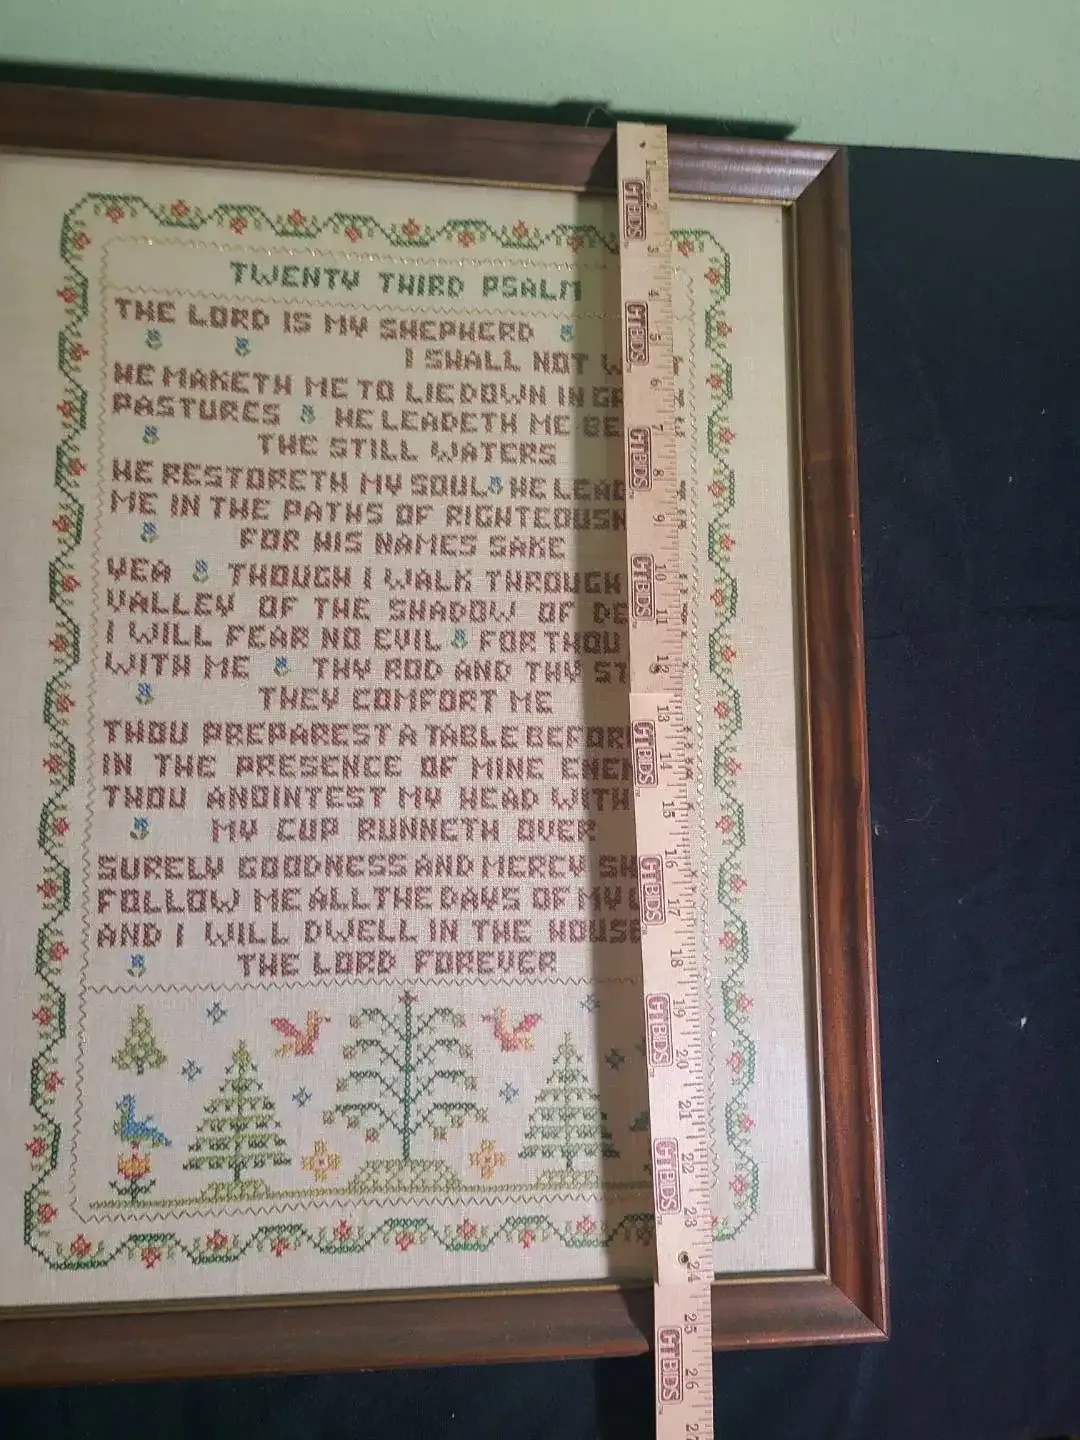 TWENTY THIRD PSALM
THE LORD IS MY SHEPHERD
I SHALL NOT
HE MAKETH ME TO LIE DOWN IN
PASTURES HE LEADETH ME
THE STILL WATERS
HE RESTORETH MY SOUL HE
ME IN THE PATHS OF
FOR HIS NAMES SAKE
YEA THOUGH I WALK THROUGH
VALLEY OF THE SHADOW OF
I WILL FEAR NO EVIL FOR THOU
WITH ME THY ROD AND THY
THEY COMFORT ME
THOU PREPAREST A TABLE
IN THE PRESENCE OF MINE
THOU ANOINTEST MY HEAD WITH
MY CUP RUNNETH OVER
SURELY GOODNESS AND MERCY
FOLLOW ME ALL THE DAYS OF MY
AND I WILL DWELL IN THE
THE LORD FOREVER
1
2
GTBIDS
3
4
GTBIDS
5
6
7
GTBIDS
8
9
10
GTBIDS
11
12
13
GTBIDS
14
15
16
GTBIDS
17
18
19
GTBIDS
20
21
22
GTBIDS
23
24
25
GTBIDS
26
27